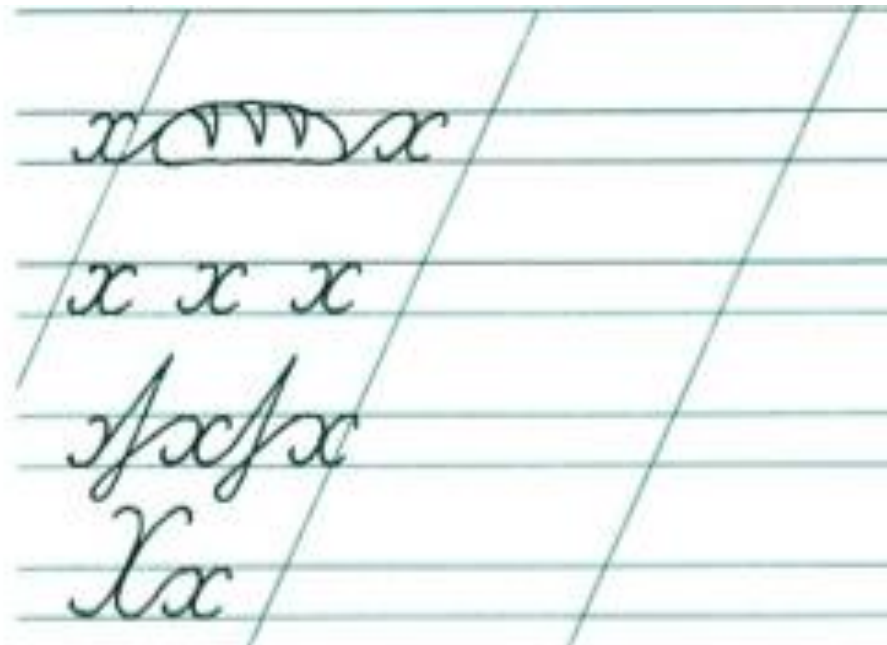 х х
х х х
х х х
Хх